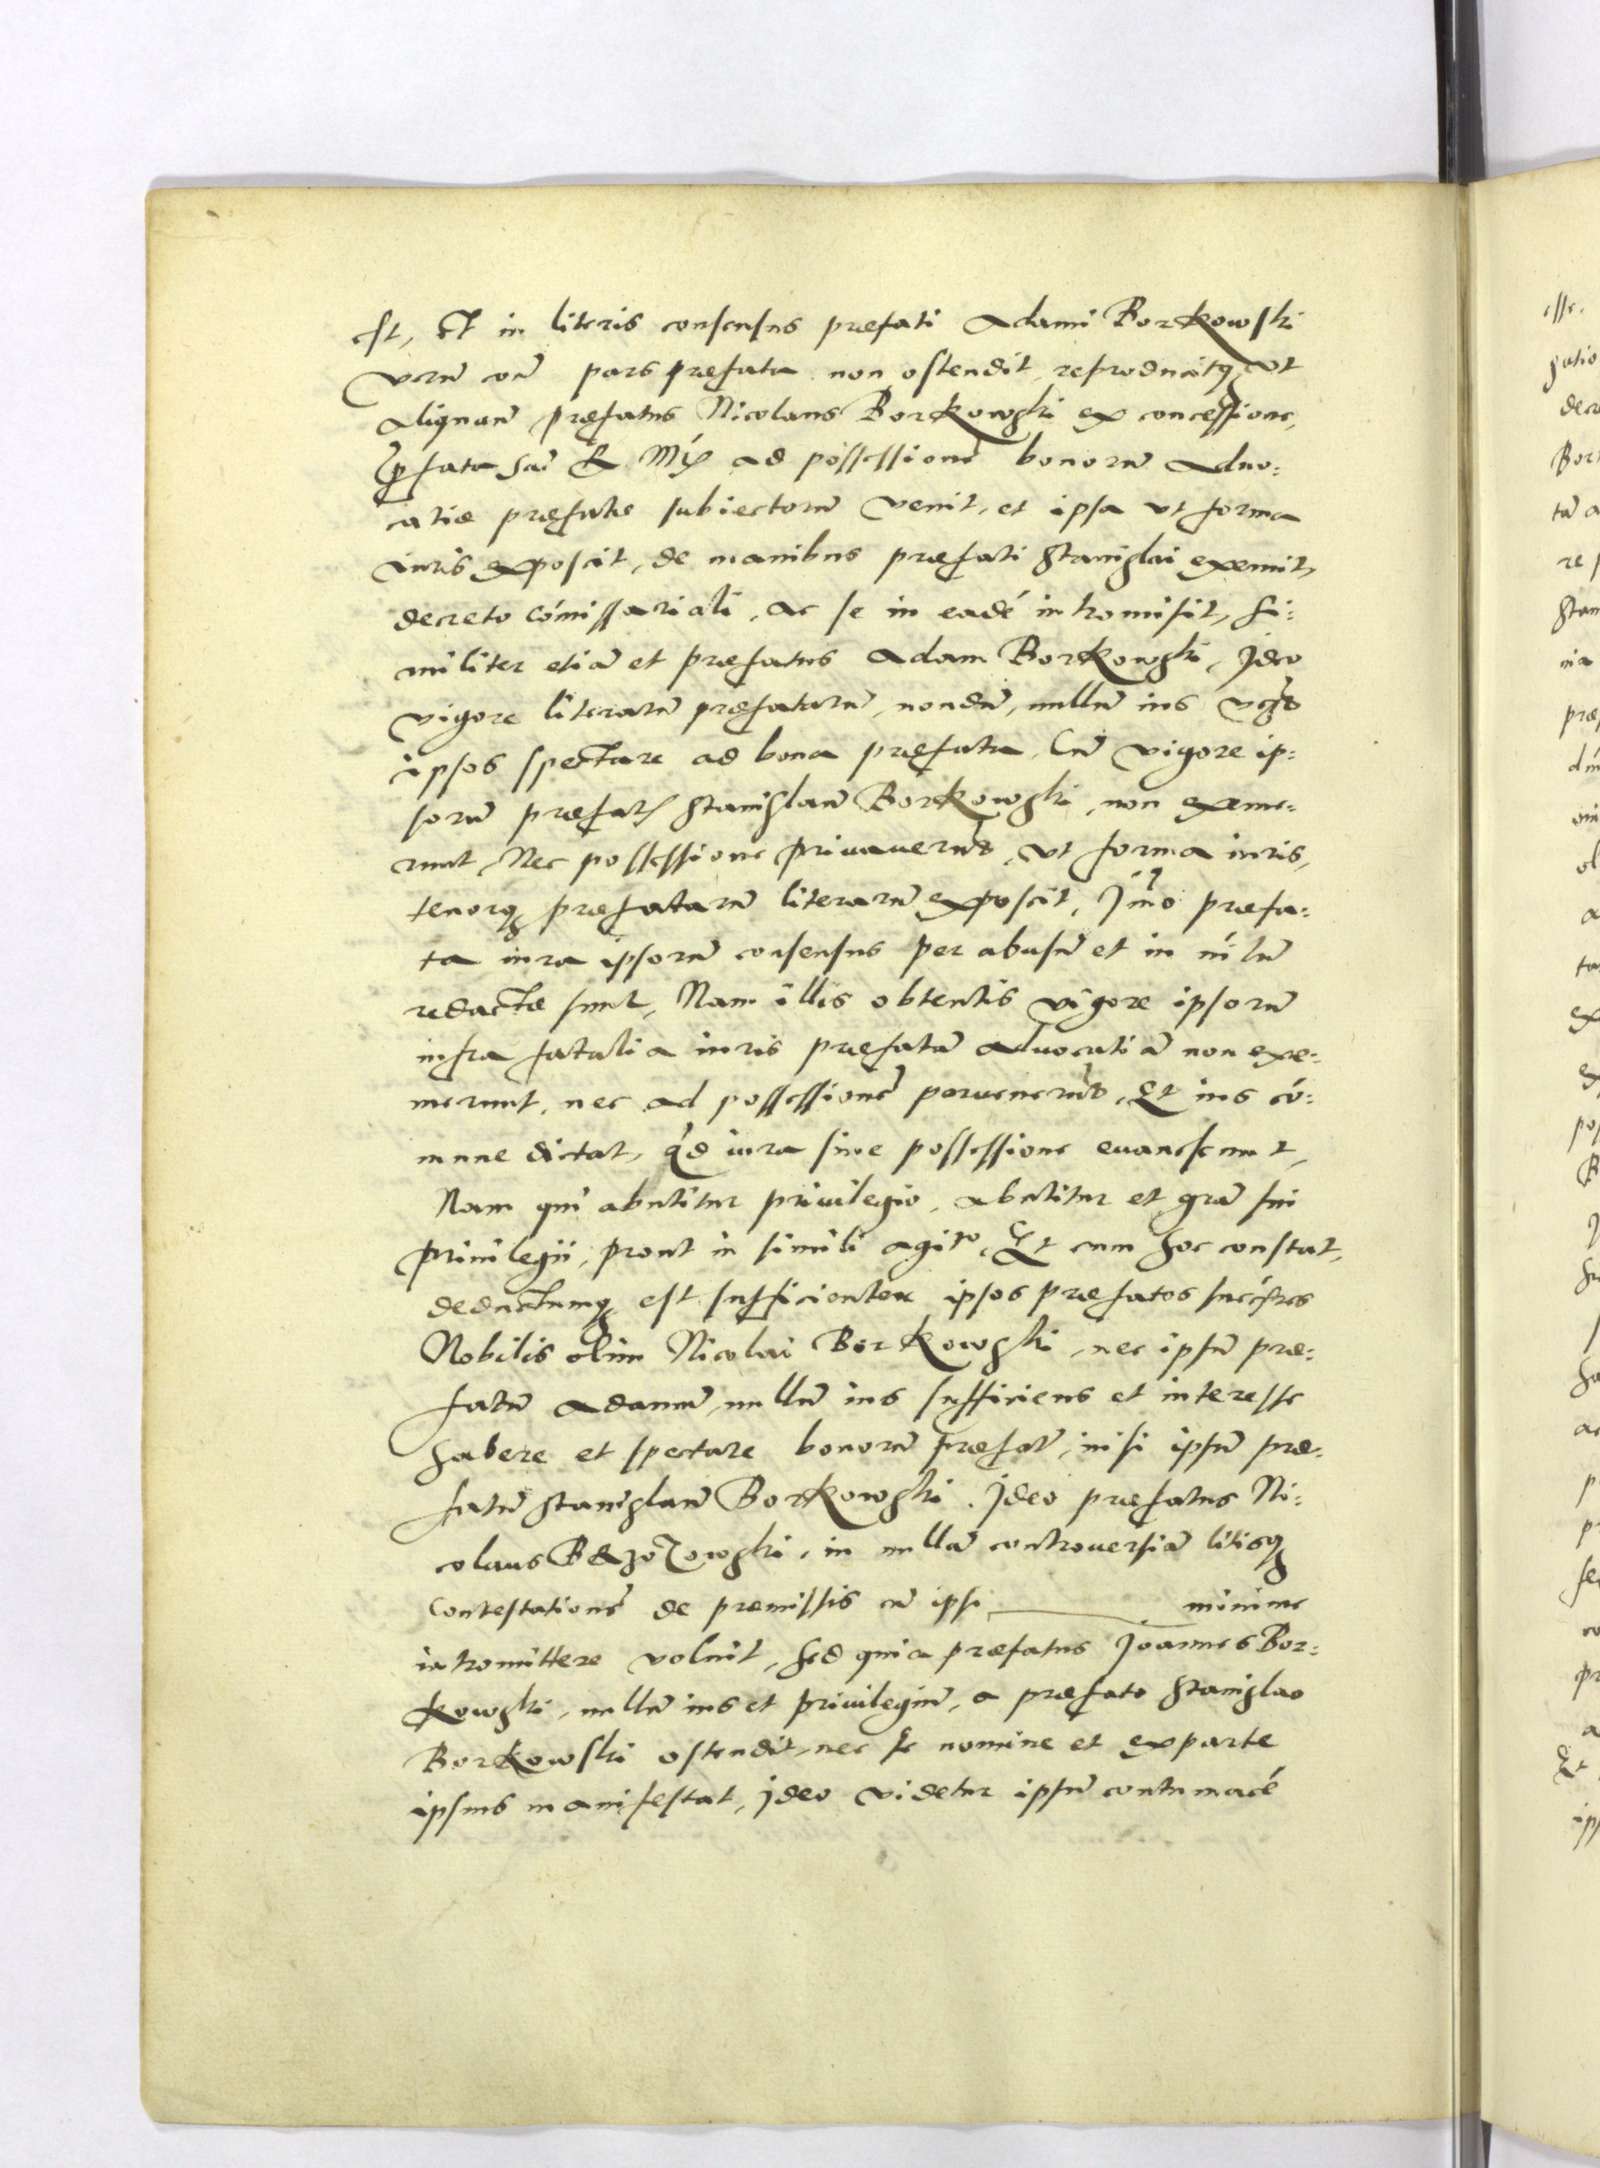 est, Et in literis consensus præfati Adami Borkowski
verum eorum pars præfata non ostendit, reproducitq, ut
aliquam præfatus Nicolaus Borkowski ex concessione,
præfata Sac R Mtis ad possessionē bonorū Advo:
catiæ præfatæ subiectorū venit, et ipsa ut forma
iuris exposcit, de manibus præfati Stanislai exemit,
decreto Cōmissariali, ac se in eadē intromisit, si:
militer etiā et præfatus Adam Borkowski, Ideo
vigore literarū præfatarū, nondū, nullū ius
ipsos spectare ad bona præfata, Cum vigore ip:
sorū præfat Stanislaū Borkowski, non exeme:
runt, Nec possessione privaverūt, ut forma iuris,
tenorq præfatarū literarū exposcit, Imo præfa:
ta iura ipsorū consensus per abusū et in nilū
redacta sunt, Nam illis obtentis vigore ipsorū
infra fatalia iuris præfatā advocatiā non exe:
merunt, nec ad possessionē pervenerūt, Et ius cō:
mune dictat, qd iura sine possessione evanescunt,
Nam qui abutitur privilegio, abutitur et grā sui
Privilegii, prout in simili agito, Et cum hoc constat,
deductumq est sufficienter ipsos præfatos succēsores
Nobilis olim Nicolai Borkowski, nec ipsū præ:
fatū Adamū, nullū ius sufficiens et interesse
habere et spectare bonorū præfat, nisi ipsū præ:
fatū Stanislaū Borkowski. Ideo præfatus Ni:
colaus Brzozowski, in nullā controversiā litisq
Contestationē de præmissis cū ipsi minime
intromittere voluit, sed quia præfatus Joannes Bor:
kowski, nullū ius et privilegiū, a præfato Stanislao
Borkowski ostendit, nec se nomine et exparte
ipsius manifestat, Ideo videtur ipsū contumacē